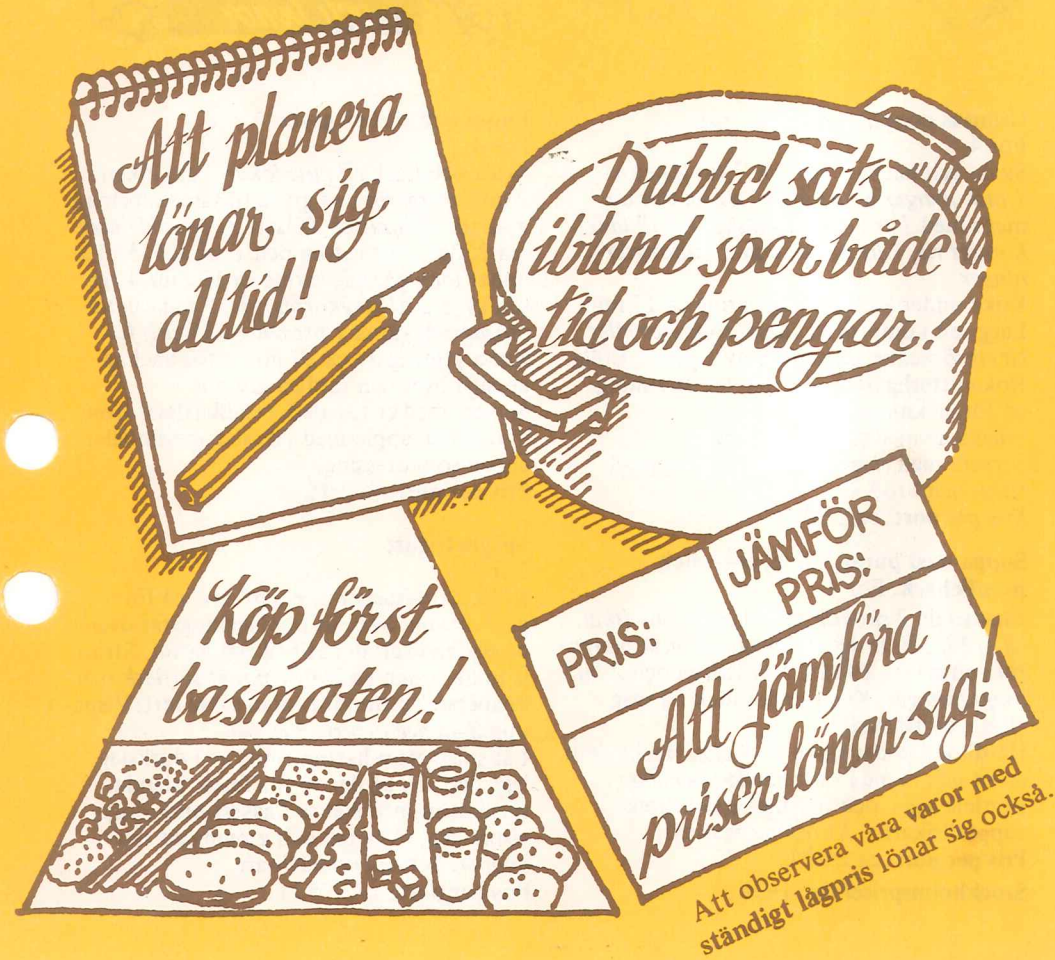 Att planera
lönar sig
alltid!
Dubbel sats
ibland spar både
tid och pengar!
Köp först
basmaten!
PRIS:
JÄMFÖR
PRIS:
Att jämföra
priser lönar sig!
Att observera våra varor med
ständigt lågpris lönar sig också.